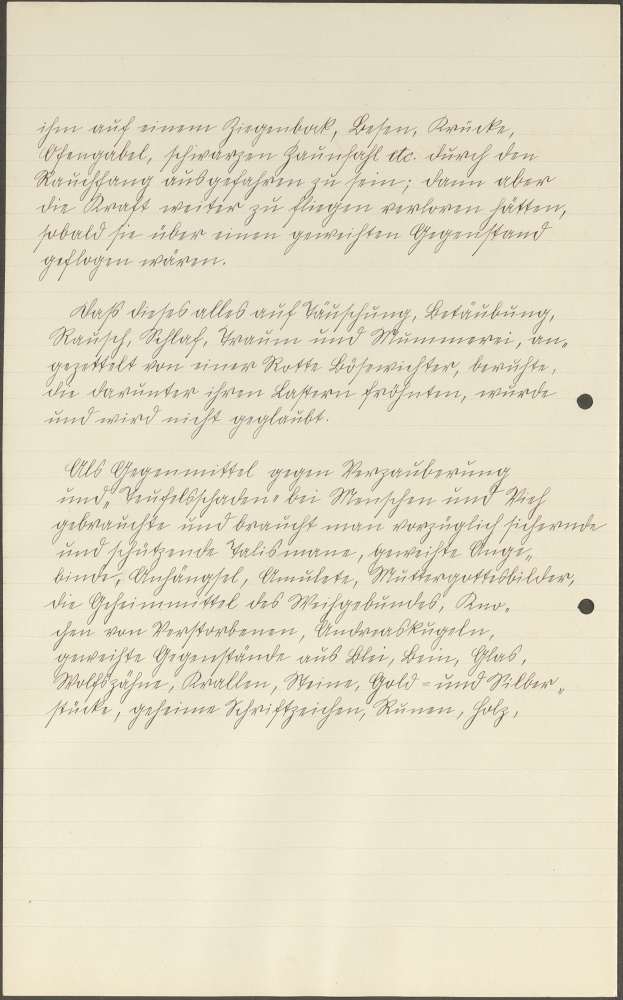 ihm auf einem Ziegenbock, Besen, Krücke,
Ofengabel, schwarzen Zaunpfahl etc. durch den
Rauchfang ausgefahren zu sein; dann aber
die Kraft weiter zu fliegen verloren hätten,
sobald sie über einen geweihten Gegenstand
geflogen wären.
Daß dieses alles auf Täuschung, Betäubung,
Rausch, Schlaf, Traum und Mummerei, an„
gezettelt von einer Rotte Bösewichter, beruhte,
die darunter ihren Lastern fröhnten, wurde
und wird nicht geglaubt.
Als Gegenmittel gegen Verzauberung
und „Teufelsschaden“ bei Menschen und Vieh
gebrauchte und braucht man vorzüglich sichernde
und schützende Talismane, geweihte Ange„
binde, Anhängsel, Amulete, Muttergottesbilder,
die Geheimmittel des Weihgebundes, Kno„
chen von Verstorbenen, Andreaskugeln,
geweihte Gegenstände aus Blei, Bein, Glas,
Wolfszähne, Krallen, Steine, Gold- und Silber„
stücke, geheime Schriftzeichen, Runen, Holz,